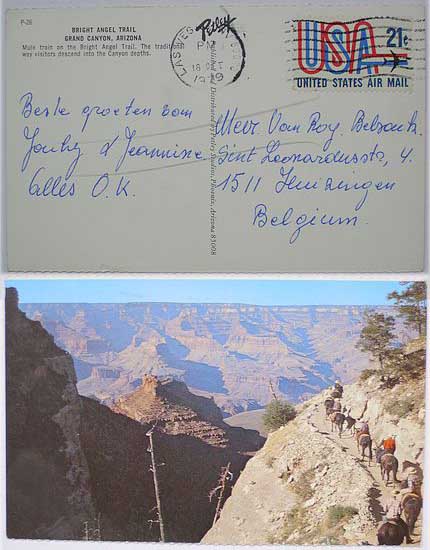 P-26
BRIGHT ANGEL TRAIL
GRAND CANYON, ARIZONA
Mule train on the Bright Angel Trail. The traditional
way visitors descend into the Canyon depths.
Petley
LAS VEGAS
PM
18 OCT
1979
USA 21c
UNITED STATES AIR MAIL
Distributed by Petley Studios, Phoenix, Arizona 85008
Beste groeten van
& Jeannine
Alles O.K.
Mevr. Van Roy.
Sint Leonardusstr, 4.
1511 Huizingen
Belgium.